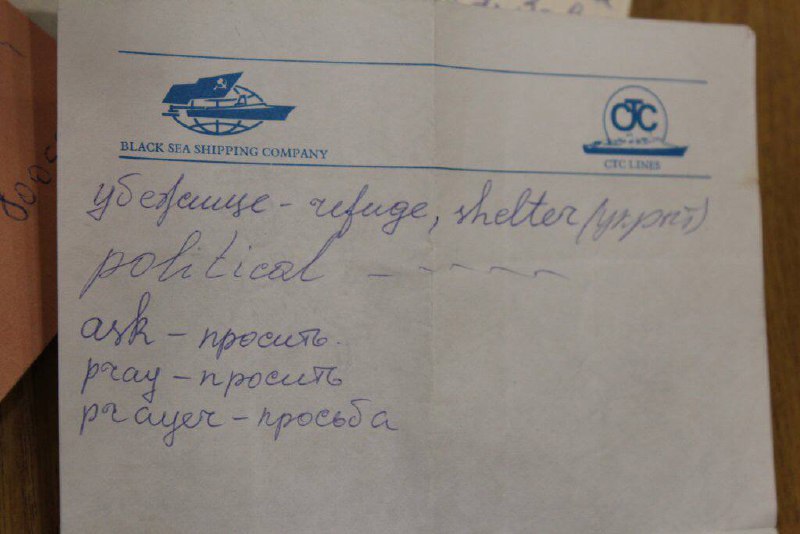 CTC
BLACK SEA SHIPPING COMPANY
CTC LINES
убежище - refuge, shelter (укрыт)
political - ~ ~ ~ ~
ask - просить.
pray - просить
prayer - просьба